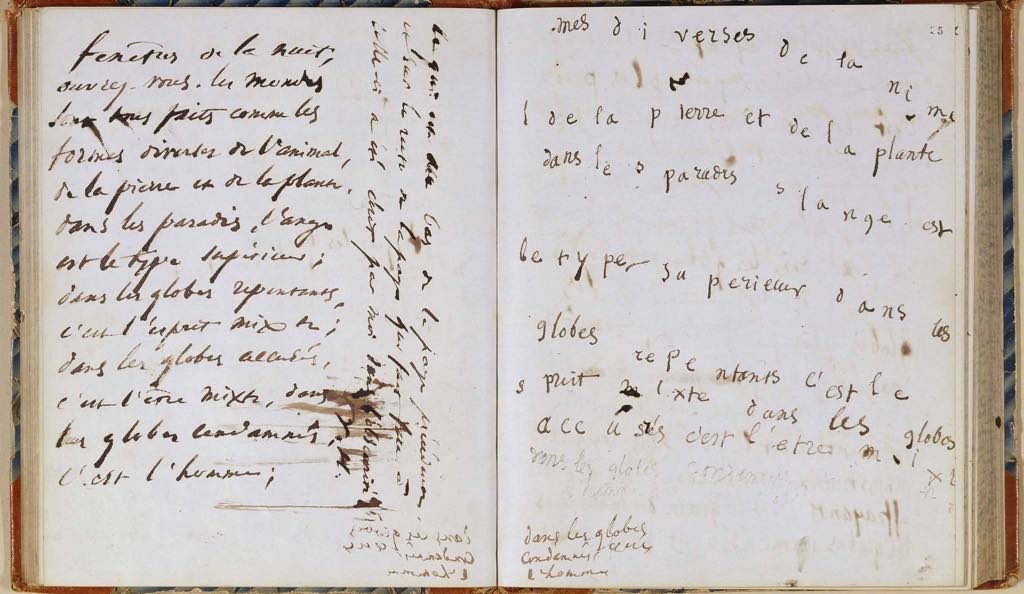 fenêtres de la nuit,
ouvrez-vous. les mondes
sont tous faits comme les
formes diverses de l'animal,
de la pierre et de la plante.
dans les paradis, l'ange
est le type supérieur;
dans les globes repentants,
c'est l'esprit mixte;
dans les globes accusés,
c'est l'être mixte, dans
les globes condamnés,
c'est l'homme;
Ce qui est au bas de la page précédente
et dans le reste de la page qui fait face à
celle-ci a été écrit par moi dans l'obscurité
V. H.
dans les globes
condamnés
l'homme
mes di verses
de la
ni me
l de la pierre et de la plante
dans le s paradis s lange est
le type su perieur dans les
globes
repentants c'est le
s prit mixte dans les globes
accusés c'est l'être mi x
te
dans les globes
dans les globes
condamnés
l'homme